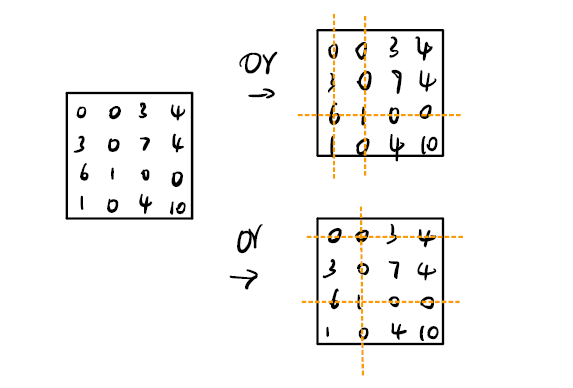 0 0 3 4
3 0 7 4
6 1 0 0
1 0 4 10
or
→
0 0 3 4
3 0 7 4
6 1 0 0
1 0 4 10
or
→
0 0 3 4
3 0 7 4
6 1 0 0
1 0 4 10